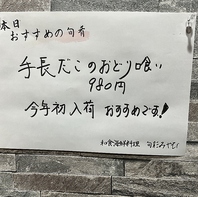 本日
おすすめの旬肴
手長だこのおどり喰い
980円
今年初入荷 おすすめです!
和食海鮮料理